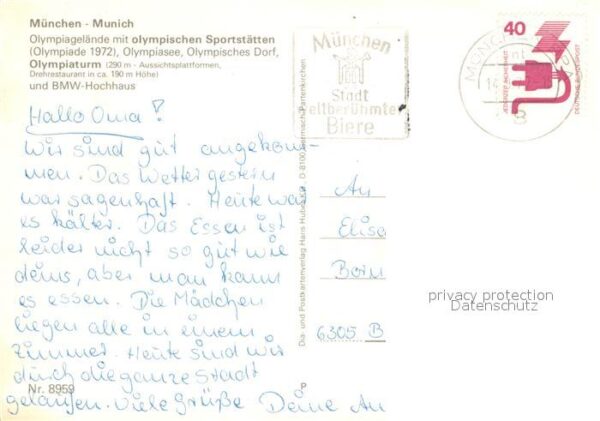 München - Munich
Olympiagelände mit olympischen Sportstätten
(Olympiade 1972), Olympiasee, Olympisches Dorf,
Olympiaturm (290 m - Aussichtsplattformen,
Drehrestaurant in ca. 190 m Höhe)
und BMW-Hochhaus
Hallo Oma!
Wir sind gut angekom-
men. Das Wetter gestern
war sagenhaft. Heute war
es kälter. Das Essen ist
leider nicht so gut wie
deins, aber man kann
es essen. Die Mädchen
liegen alle in einem
Zimmer. Heute sind wir
durch die ganze Stadt
gelaufen. Viele Grüße Deine An
Nr. 8959
Dia- und Postkartenverlag Hans Huber D 8100 Garmisch-Partenkirchen
P
München
Stadt
eltberühmter
Biere
MÜNCH
40
DEUTSCHE BUNDESPOST
An
Elise
Born
6305 B
privacy protection
Datenschutz